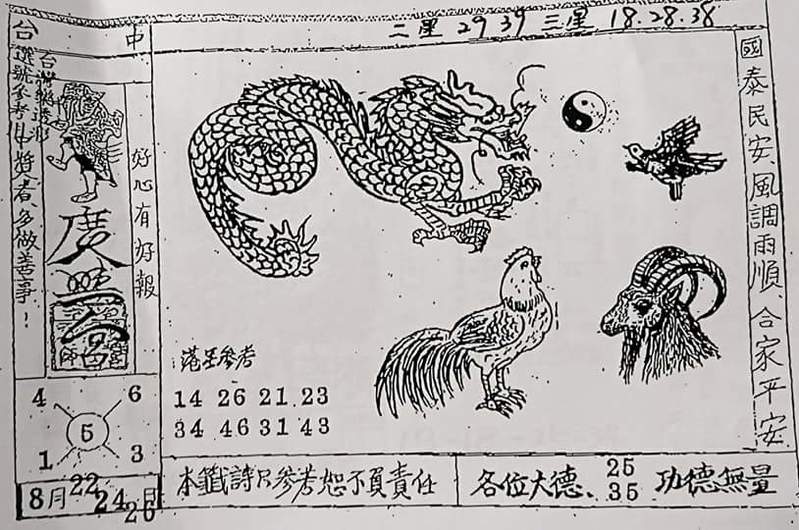 台 中
二星 29 39 三星 18.28.38
選號參考中獎者多做善事！
好心有好報
國泰民安、風調雨順、合家平安
港星參考
14 26 21.23
34 46 31 43
4 6
5
1 3
8月22 24 26
本籤詩只參考恕不負責任
各位大德、25 35 功德無量